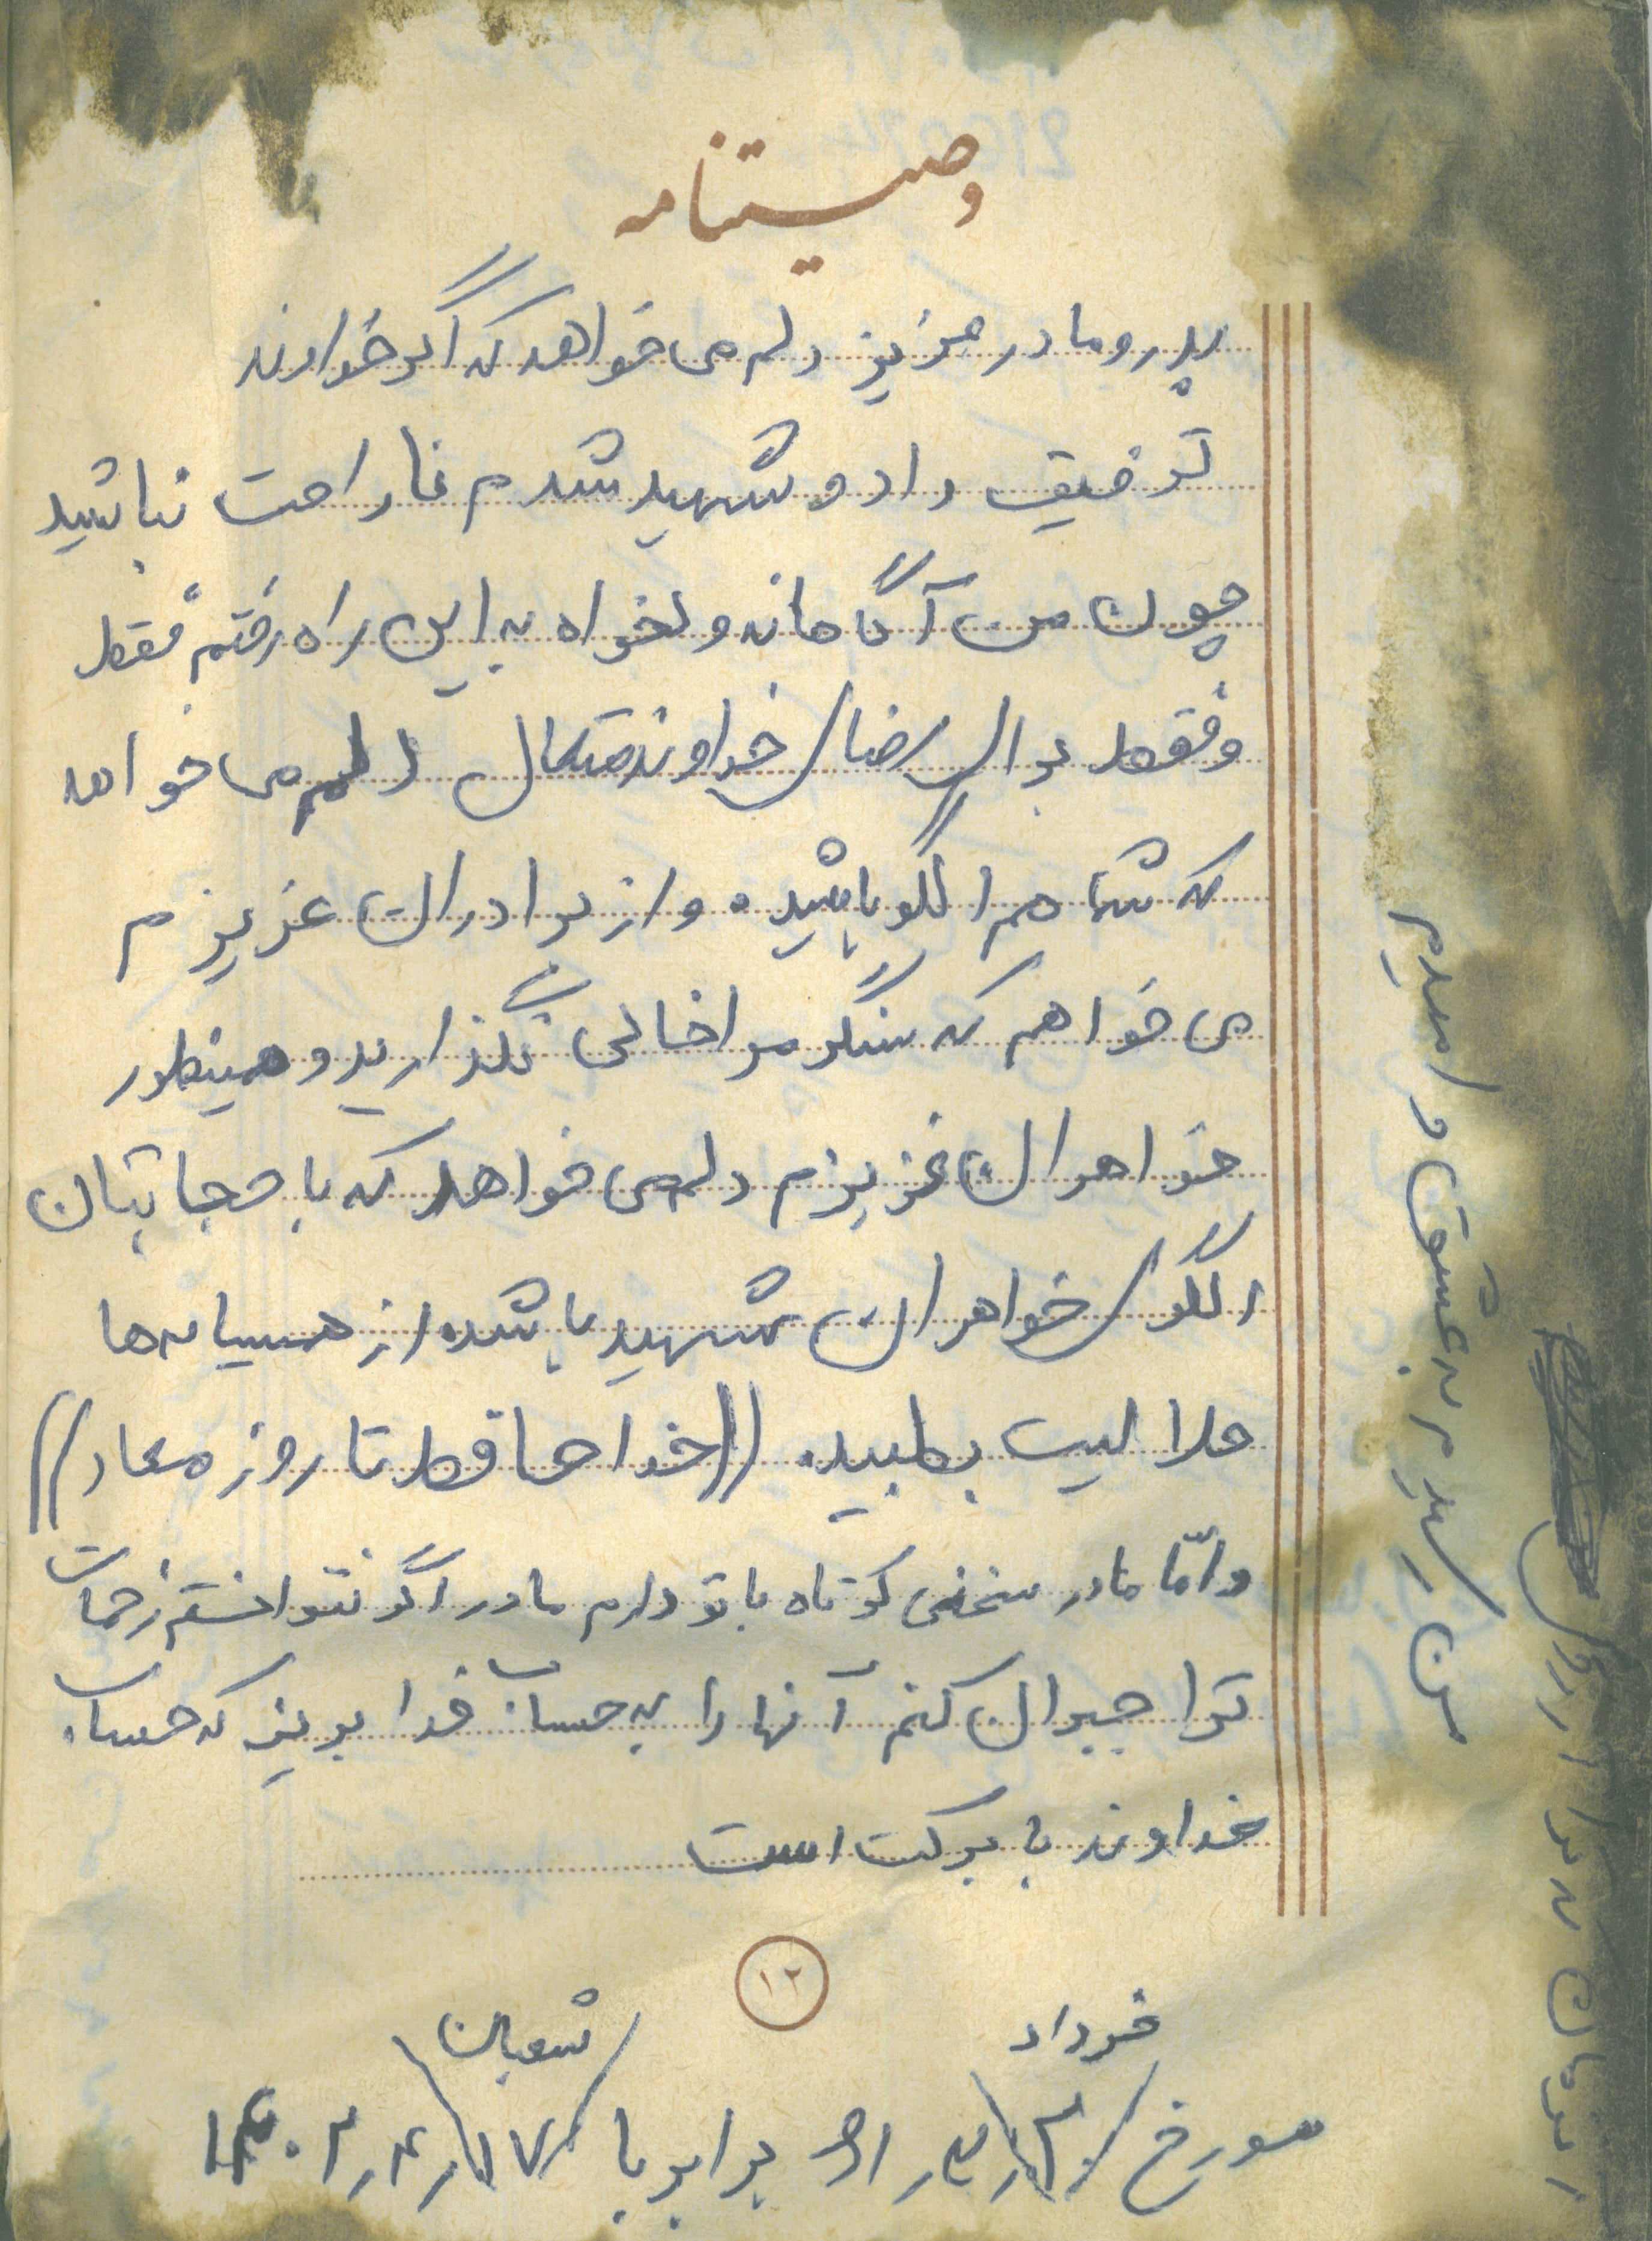 وصیتنامه
پدر و مادر عزیز دلم می خواهد که اگر خداوند
توفیق داد و شهید شدم ناراحت نباشید
چون من آگاهانه و دلخواه به این راه رفتم فقط
و فقط برای رضای خداوند متعال دلم می خواهد
که شما هم الگو باشید. و از برادران عزیزم
می خواهم که سنگر مرا خالی نگذارید و همینطور
خواهران عزیزم دلم می خواهد که با حجابتان
الگوی خواهران شهید باشد. از همسایه ها
حلالیت بطلبید. ((خداحافظ تا روز معاد))
و امّا مادر سخنی کوتاه با تو دارم مادر اگر نتوانستم زحمات
ترا جبران کنم آنها را به حساب خدا بریز که حساب
خداوند با برکت است
۱۲
خرداد
شعبان
مورخ برابر با
من به عشق و امیدم